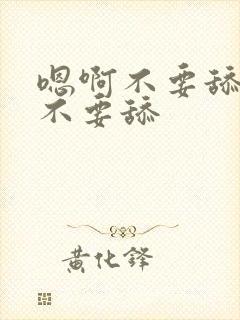 嗯啊不要舔
不要舔
黄化锋